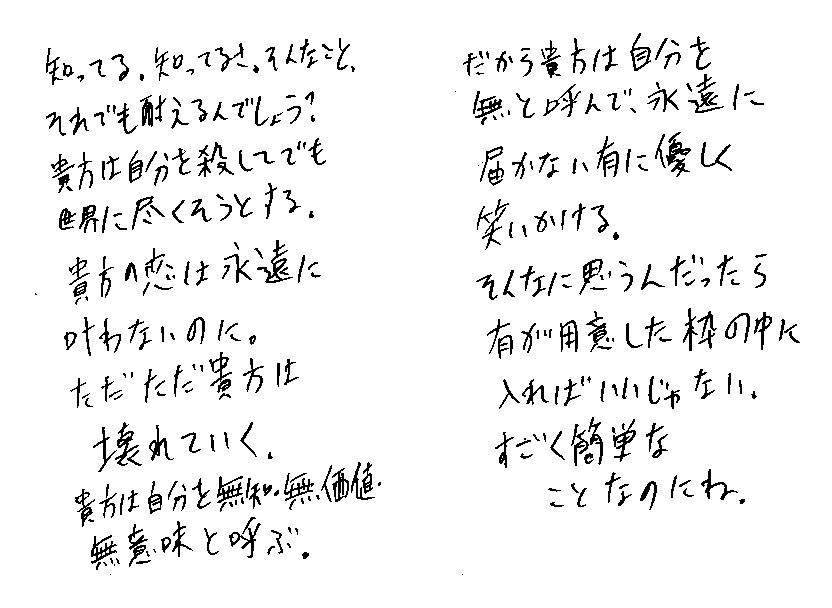 知ってる。知ってるさ。そんなこと、
それでも耐えるんでしょう?
貴方は自分を殺してでも
世界に尽くそうとする。
貴方の恋は永遠に
叶わないのに。
ただただ貴方は
壊れていく。
貴方は自分を無知・無価値・
無意味と呼ぶ。
だから貴方は自分を
無と呼んで、永遠に
届かない有に優しく
笑いかける。
そんなに思うんだったら
有が用意した枠の中に
入ればいいじゃない。
すごく簡単な
ことなのにね。